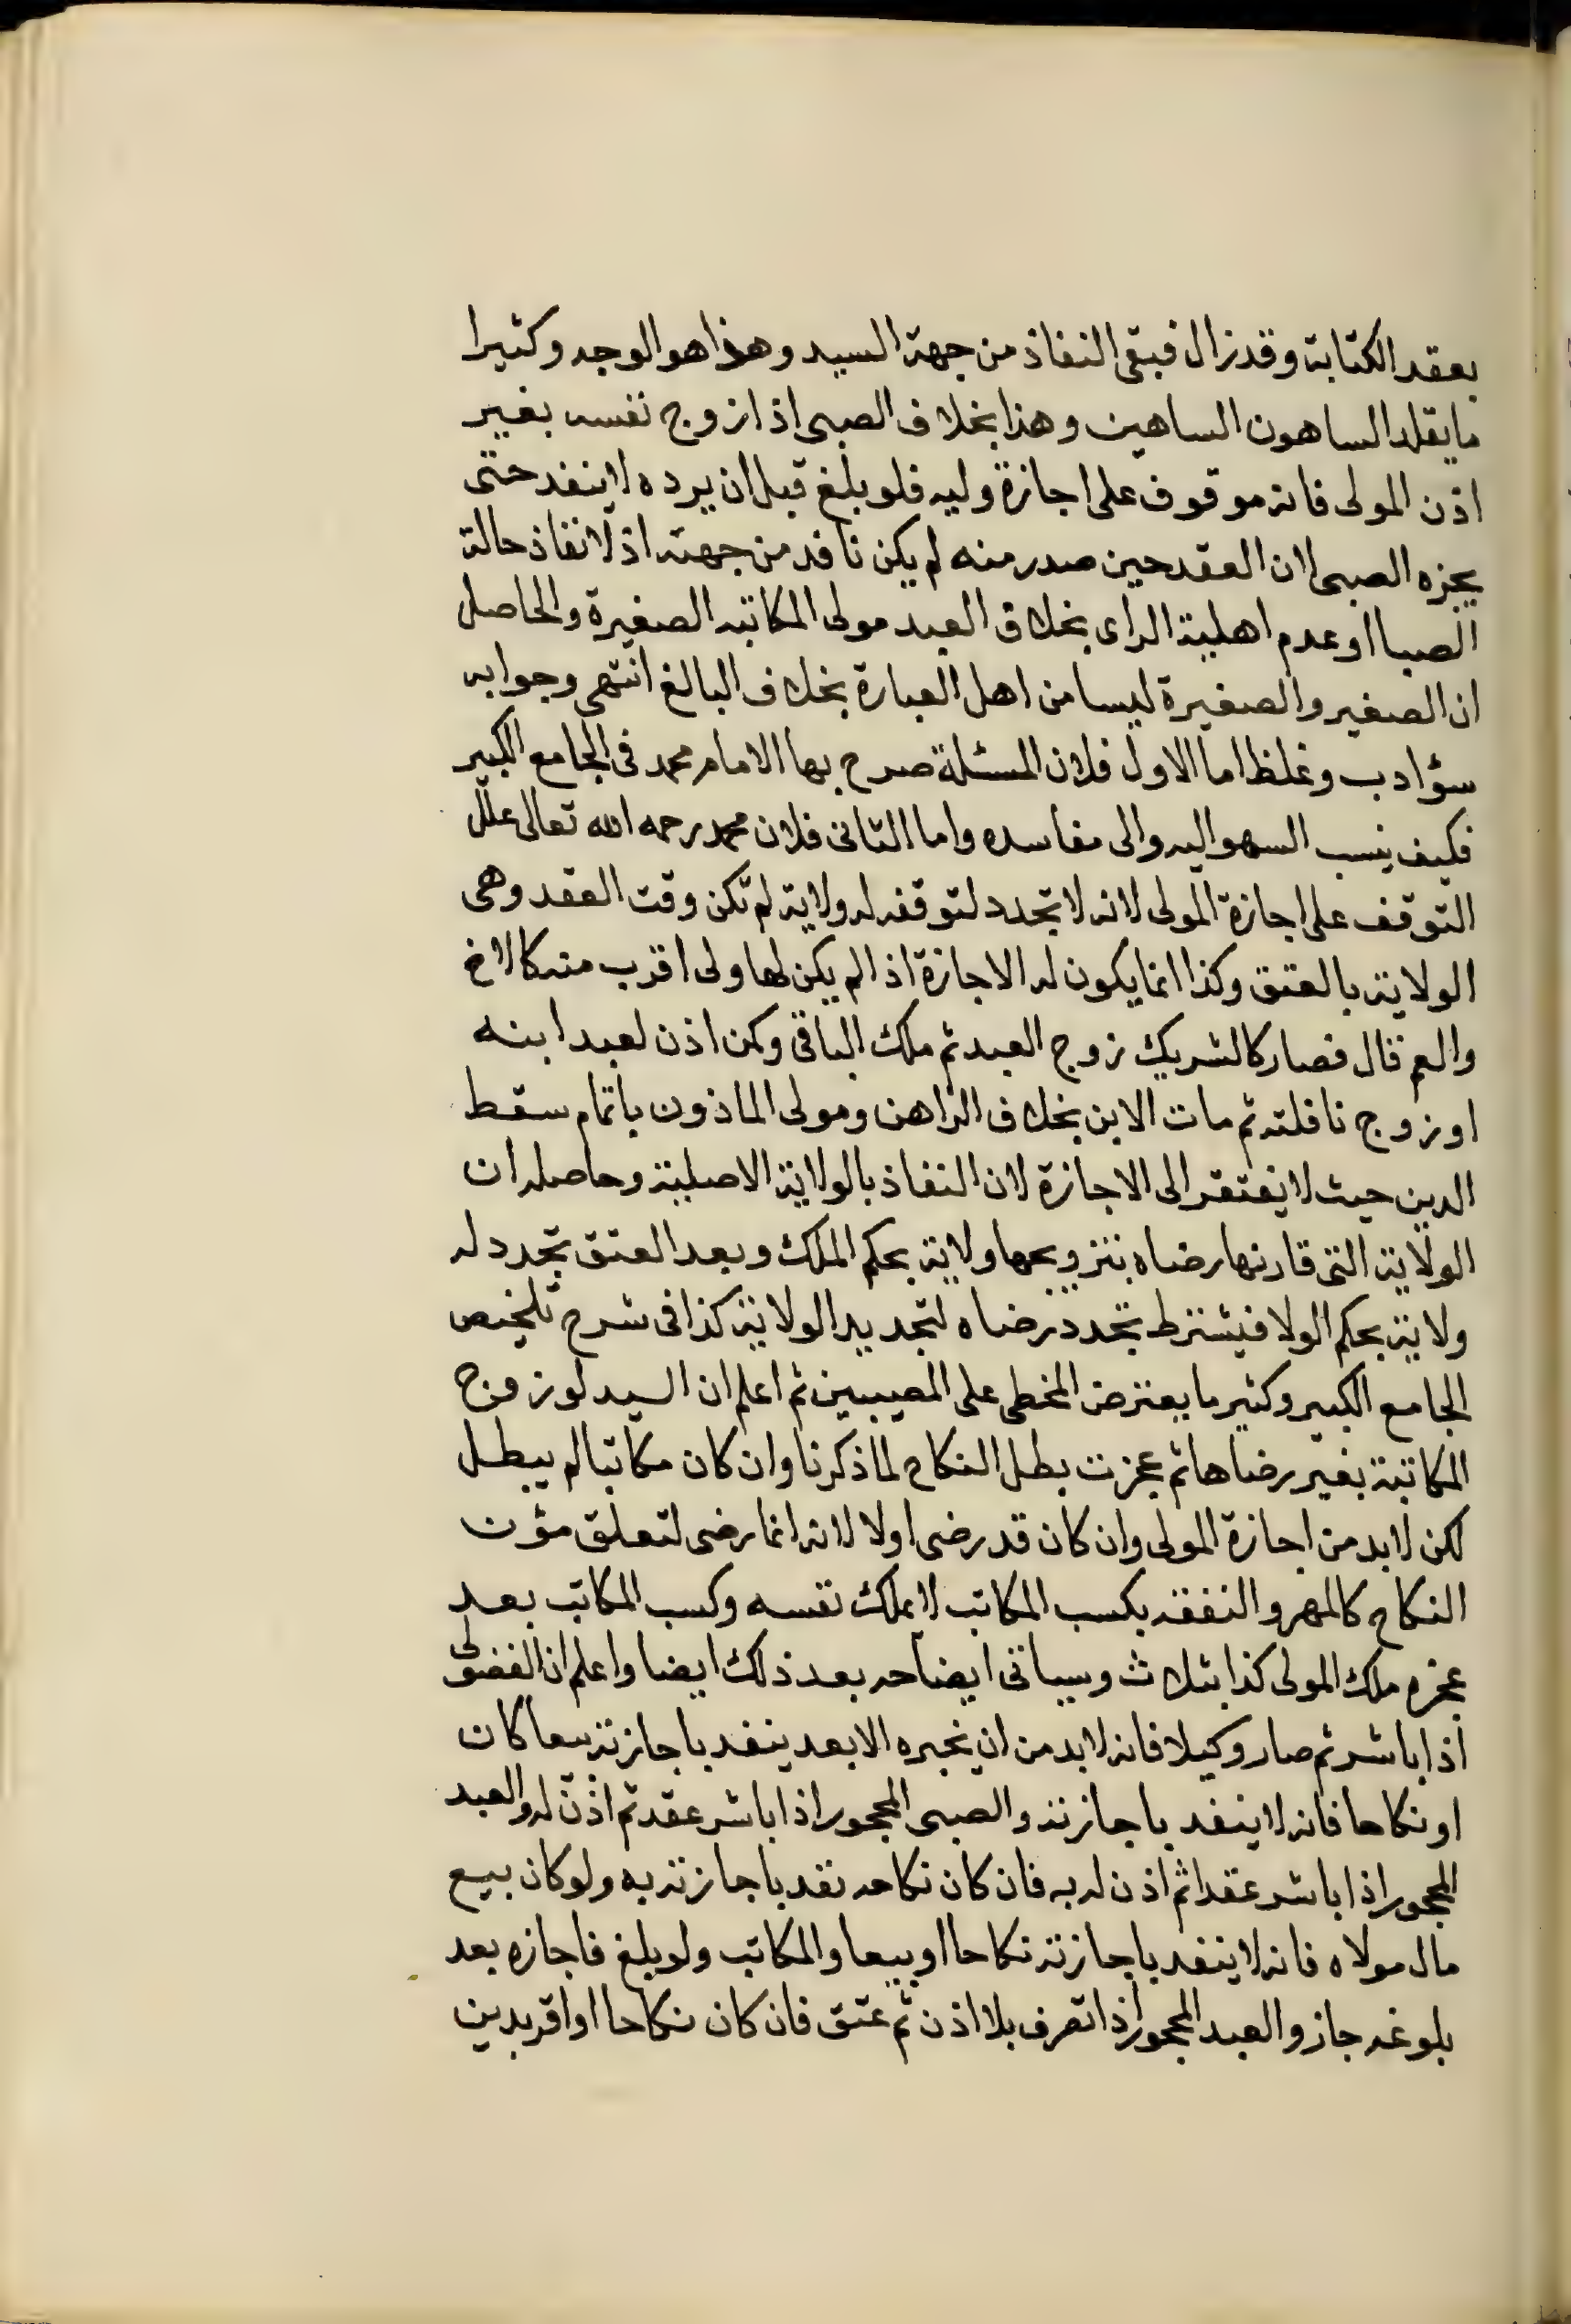 بعقد الكتابة وقد زال فبقى النفاذ من جهة السيد وهذا هو الوجه وكثيرا
ما يقلد الساهون الساهين وهذا بخلاف الصبى اذا زوج نفسه بغير
اذن المولى فانه موقوف على اجازة وليه فلو بلغ قبل ان يرده لا ينفد حتى
يجزه الصبى لان العقد حين صدر منه لم يكن نافد من جهته اذ لا نفاذ حالة
الصبا او عدم اهلية الراى بخلاف العبد مولى المكاتبه الصغيرة والحاصل
ان الصغير والصغيرة ليسا من اهل العبارة بخلاف البالغ انتهى وجوابه
سؤ ادب وغلظ اما الاول فلان المسئلة صرح بها الامام محمد فى الجامع الكبير
فكيف ينسب السهو اليه والى مفاسده واما الثانى فلان محمد رحمه الله تعالى علل
التوقف على اجازة المولى لانه لا تجدد لتوقفه له ولاية لم تكن وقت العقد وهى
الولاية بالعتق وكذا انما يكون له الاجازة اذا لم يكن لها ولى اقرب منه كالاخ
والعم قال فصار كالشريك زوج العبد ثم ملك الباقى وكمن اذن لعبد ابنه
او زوج نافلته ثم مات الابن بخلاف الراهن ومولى الماذون باتمام سقط
الدين حيث لا يفتقر الى الاجازة لان النفاذ بالولاية الاصلية وحاصله ان
الولاية التى قارنها رضاه بتزويجها ولاية بحكم الملك وبعد العتق تجدد له
ولاية بحكم الولا فيشترط تجدد رضاه لتجديد الولاية كذا فى شرح تلخيص
الجامع الكبير وكثير ما يعترض المخطى على المصيبين ثم اعلم ان السيد لو زوج
المكاتبة بغير رضاها ثم عجزت بطل النكاح لما ذكرنا وان كان مكاتبا لم يبطل
لكن لا بد من اجازة المولى وان كان قد رضى اولا لانه انما رضى لتعلق مؤن
النكاح كالمهر والنفقه بكسب المكاتب لا بملك نفسه وكسب المكاتب بعد
عجزه ملك المولى كذا بثلاث وسياتى ايضاحه بعد ذلك ايضا واعلم ان الفضولى
اذا باشر ثم صار وكيلا فانه لا بد من ان يجيره الا بعد ينفد باجازته بيعا كان
او نكاحا فانه لا ينفد باجازته والصبى المحجور اذا باشر عقد ثم اذن له والعبد
المحجور اذا باشر عقدا ثم اذن له به فان كان نكاحه نفد باجازته به ولو كان بيع
مال مولاه فانه لا ينفد باجازته نكاحا او بيعا والمكاتب ولو بلغ فاجازه بعد
بلوغه جاز والعبد المحجور اذا تعرف بلا اذن ثم عتق فان كان نكاحا او اقر بدين